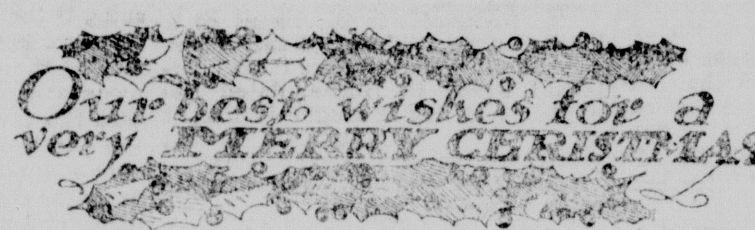 Our best wishes for a
very MERRY CHRISTMAS